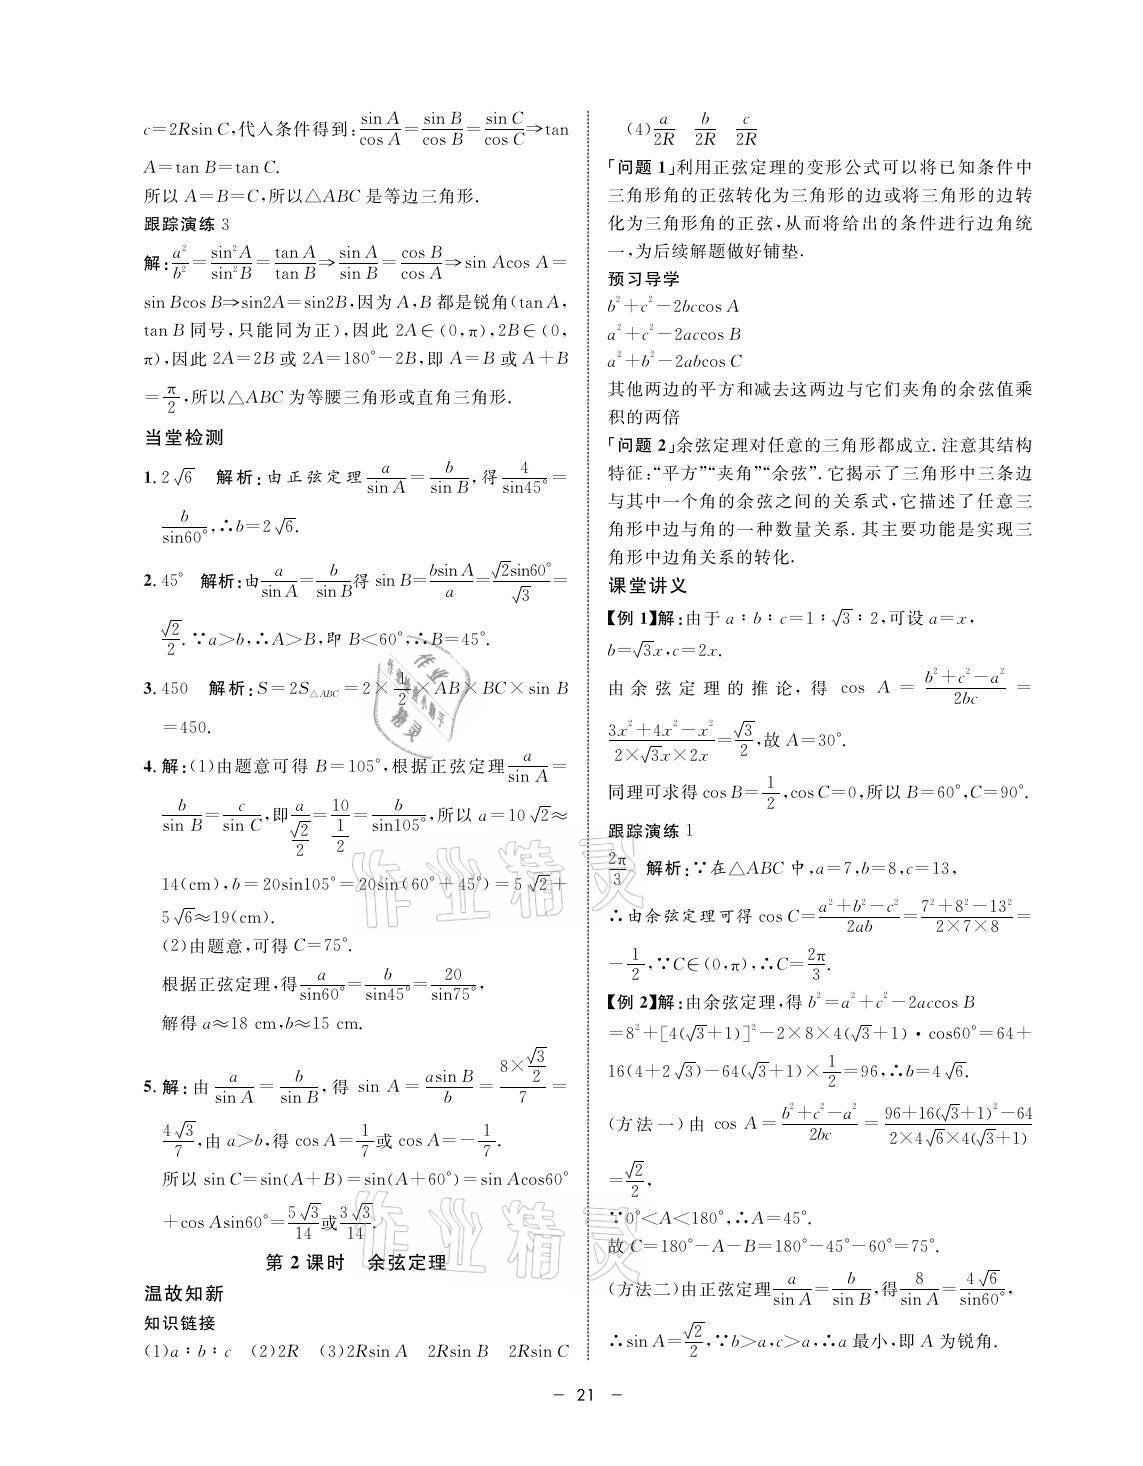 c=2Rsin C,代入条件得到:sin A/cos A=sin B/cos B=sin C/cos C⇒tan
A=tan B=tan C.
所以 A=B=C,所以△ABC 是等边三角形.
跟踪演练 3
解:a²/b²=sin²A/sin²B=tan A/tan B⇒sin A/sin B=cos B/cos A⇒sin Acos A=
sin Bcos B⇒sin2A=sin2B,因为 A,B 都是锐角(tan A,
tan B 同号,只能同为正),因此 2A∈(0,π),2B∈(0,
π),因此 2A=2B 或 2A=180°-2B,即 A=B 或 A+B
=π/2,所以△ABC 为等腰三角形或直角三角形.
当堂检测
1. 2√6 解析:由正弦定理 a/sin A=b/sin B,得 4/sin45°=
b/sin60°,∴b=2√6.
2. 45° 解析:由 a/sin A=b/sin B 得 sin B=bsin A/a=√2sin60°/√3=
√2/2.∵a>b,∴A>B,即 B<60°,∴B=45°.
3. 450 解析:S=2S△ABC=2×1/2×AB×BC×sin B
=450.
4. 解:(1)由题意可得 B=105°,根据正弦定理 a/sin A=
b/sin B=c/sin C,即 a/(√2/2)=10/(1/2)=b/sin105°,所以 a=10√2≈
14(cm),b=20sin105°=20sin(60°+45°)=5√2+
5√6≈19(cm).
(2)由题意,可得 C=75°.
根据正弦定理,得 a/sin60°=b/sin45°=20/sin75°,
解得 a≈18 cm,b≈15 cm.
5. 解:由 a/sin A=b/sin B,得 sin A=asin B/b=(8×√3/2)/7=
4√3/7,由 a>b,得 cos A=1/7 或 cos A=-1/7.
所以 sin C=sin(A+B)=sin(A+60°)=sin Acos60°
+cos Asin60°=5√3/14 或 3√3/14.
第 2 课时 余弦定理
温故知新
知识链接
(1)a∶b∶c (2)2R (3)2Rsin A 2Rsin B 2Rsin C
(4)a/2R b/2R c/2R
「问题 1」利用正弦定理的变形公式可以将已知条件中
三角形角的正弦转化为三角形的边或将三角形的边转
化为三角形角的正弦,从而将给出的条件进行边角统
一,为后续解题做好铺垫.
预习导学
b²+c²-2bccos A
a²+c²-2accos B
a²+b²-2abcos C
其他两边的平方和减去这两边与它们夹角的余弦值乘
积的两倍
「问题 2」余弦定理对任意的三角形都成立.注意其结构
特征:“平方”“夹角”“余弦”.它揭示了三角形中三条边
与其中一个角的余弦之间的关系式,它描述了任意三
角形中边与角的一种数量关系.其主要功能是实现三
角形中边角关系的转化.
课堂讲义
【例 1】解:由于 a∶b∶c=1∶√3∶2,可设 a=x,
b=√3x,c=2x.
由余弦定理的推论,得 cos A=(b²+c²-a²)/2bc=
(3x²+4x²-x²)/(2×√3x×2x)=√3/2,故 A=30°.
同理可求得 cos B=1/2,cos C=0,所以 B=60°,C=90°.
跟踪演练 1
2π/3 解析:∵在△ABC 中,a=7,b=8,c=13,
∴由余弦定理可得 cos C=(a²+b²-c²)/2ab=(7²+8²-13²)/(2×7×8)=
-1/2,∵C∈(0,π),∴C=2π/3.
【例 2】解:由余弦定理,得 b²=a²+c²-2accos B
=8²+[4(√3+1)]²-2×8×4(√3+1)·cos60°=64+
16(4+2√3)-64(√3+1)×1/2=96,∴b=4√6.
(方法一)由 cos A=(b²+c²-a²)/2bc=(96+16(√3+1)²-64)/(2×4√6×4(√3+1))
=√2/2,
∵0°<A<180°,∴A=45°.
故 C=180°-A-B=180°-45°-60°=75°.
(方法二)由正弦定理 a/sin A=b/sin B,得 8/sin A=4√6/sin60°,
∴sin A=√2/2,∵b>a,c>a,∴a 最小,即 A 为锐角.
- 21 -
作业精灵
作业精灵